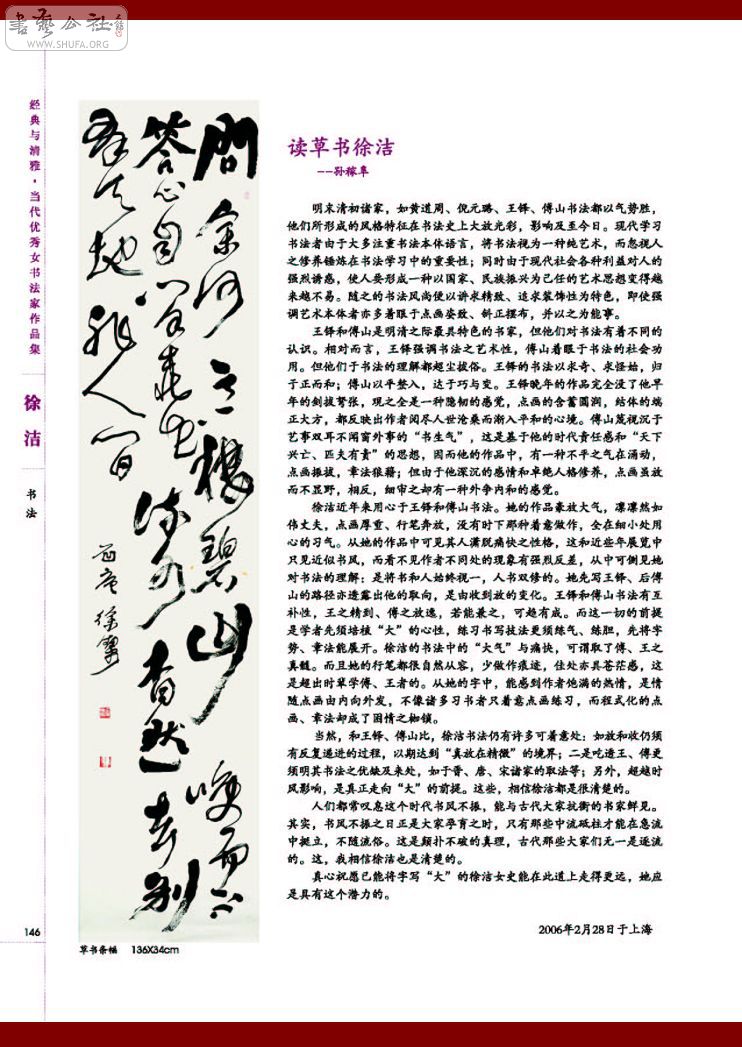 書藝公社
WWW.SHUFA.ORG
经典与清雅·当代优秀女书法家作品集
徐洁
书法
146
問余何意棲碧山笑而不
答心自闲桃花流水杳然去别
有天地非人间
徐洁
草书条幅 136X34cm
读草书徐洁
--孙稼阜
明末清初诸家，如黄道周、倪元璐、王铎、傅山书法都以气势胜，
他们所形成的风格特征在书法史上大放光彩，影响及至今日。现代学习
书法者由于大多注重书法本体语言，将书法视为一种纯艺术，而忽视人
之修养锤炼在书法学习中的重要性；同时由于现代社会各种利益对人的
强烈诱惑，使人要形成一种以国家、民族振兴为己任的艺术思想变得越
来越不易。随之的书法风尚便以讲求精致、追求装饰性为特色，即使强
调艺术本体者亦多着眼于点画姿致、斜正摆布，并以之为能事。
王铎和傅山是明清之际最具特色的书家，但他们对书法有着不同的
认识。相对而言，王铎强调书法之艺术性，傅山着眼于书法的社会功
用。但他们于书法的理解都超尘拔俗。王铎的书法以求奇、求怪始，归
于正而和；傅山以平整入，达于巧与变。王铎晚年的作品完全没了他早
年的剑拔弩张，观之全是一种隐韧的感觉，点画的含蓄圆润，结体的端
正大方，都反映出作者阅尽人世沧桑而渐入平和的心境。傅山蔑视沉于
艺事双耳不闻窗外事的“书生气”，这是基于他的时代责任感和“天下
兴亡、匹夫有责”的思想，因而他的作品中，有一种不平之气在涌动，
点画振拔，章法狼籍；但由于他深沉的感情和卓绝人格修养，点画虽放
而不显野，相反，细审之却有一种外争内和的感觉。
徐洁近年来用心于王铎和傅山书法。她的作品豪放大气，凛凛然如
伟丈夫，点画厚重、行笔奔放，没有时下那种着意做作，全在细小处用
心的习气。从她的作品中可见其人潇脱痛快之性格，这和近些年展览中
只见近似书风，而看不见作者不同处的现象有强烈反差，从中可侧见她
对书法的理解：是将书和人始终视一，人书双修的。她先写王铎、后傅
山的路径亦透露出他的取向，是由收到放的变化。王铎和傅山书法有互
补性，王之精到、傅之放逸，若能兼之，可趋有成。而这一切的前提
是学者先须培植“大”的心性，练习书写技法更须练气、练胆，先将字
势、章法能展开。徐洁的书法中的“大气”与痛快，可谓取了傅、王之
真髓。而且她的行笔都很自然从容，少做作痕迹，佳处亦具苍茫感，这
是超出时辈学傅、王者的。从她的字中，能感到作者饱满的热情，是情
随点画由内向外发，不像诸多习书者只着意点画练习，而程式化的点
画、章法却成了困情之枷锁。
当然，和王铎、傅山比，徐洁书法仍有许多可着意处：如放和收仍须
有反复递进的过程，以期达到“真放在精微”的境界；二是吃透王、傅更
须明其书法之优缺及来处，如于晋、唐、宋诸家的取法等；另外，超越时
风影响，是真正走向“大”的前提。这些，相信徐洁都是很清楚的。
人们都常叹息这个时代书风不振，能与古代大家抗衡的书家鲜见。
其实，书风不振之日正是大家孕育之时，只有那些中流砥柱才能在急流
中挺立，不随流俗。这是颠扑不破的真理，古代那些大家们无一是逐流
的。这，我相信徐洁也是清楚的。
真心祝愿已能将字写“大”的徐洁女史能在此道上走得更远，她应
是具有这个潜力的。
2006年2月28日于上海